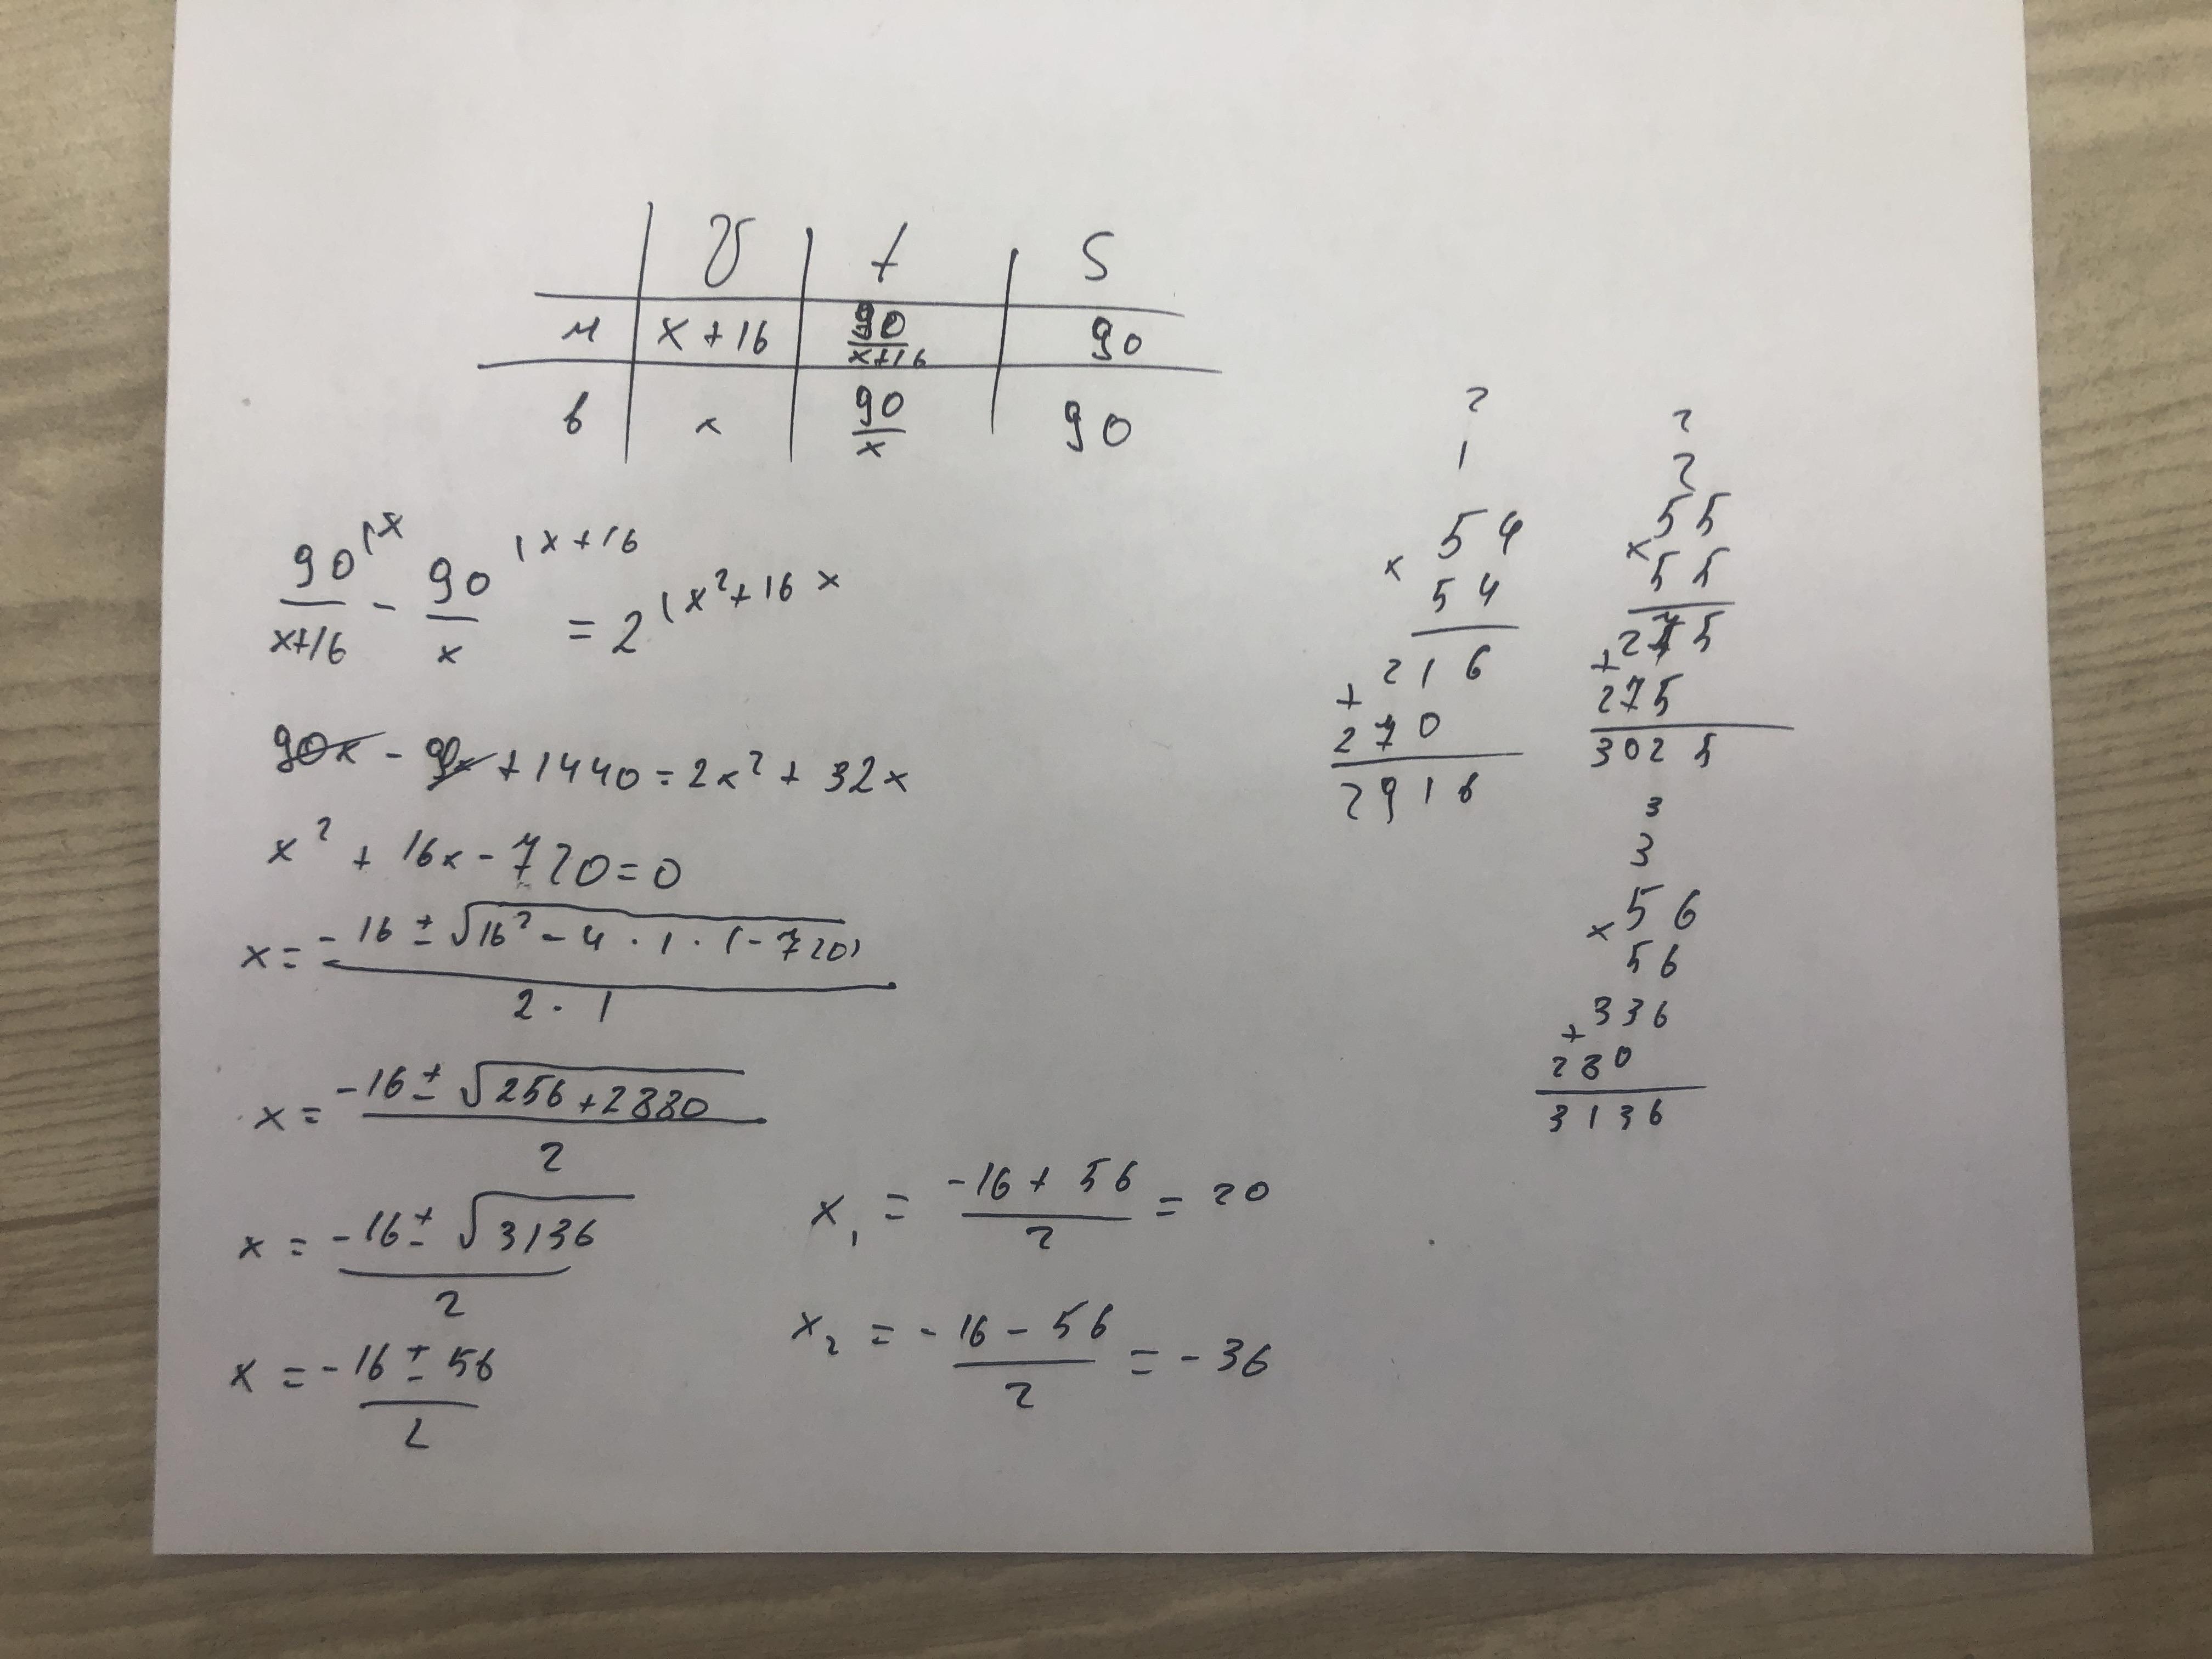 v t S
м x+16 90/(x+16) 90
в x 90/x 90
90/(x+16) (x - 90/x (x+16 = 2 (x²+16x
90x - 90x + 1440 = 2x² + 32x
x² + 16x - 720 = 0
x = (-16 ± √(16² - 4 · 1 · (-720)))/(2 · 1)
x = (-16 ± √(256 + 2880))/2
x = (-16 ± √3136)/2
x = (-16 ± 56)/2
x₁ = (-16 + 56)/2 = 20
x₂ = (-16 - 56)/2 = -36
2
1
54
× 54
216
+ 270
2916
2
2
55
× 55
275
+ 275
3025
3
3
56
× 56
336
+ 280
3136